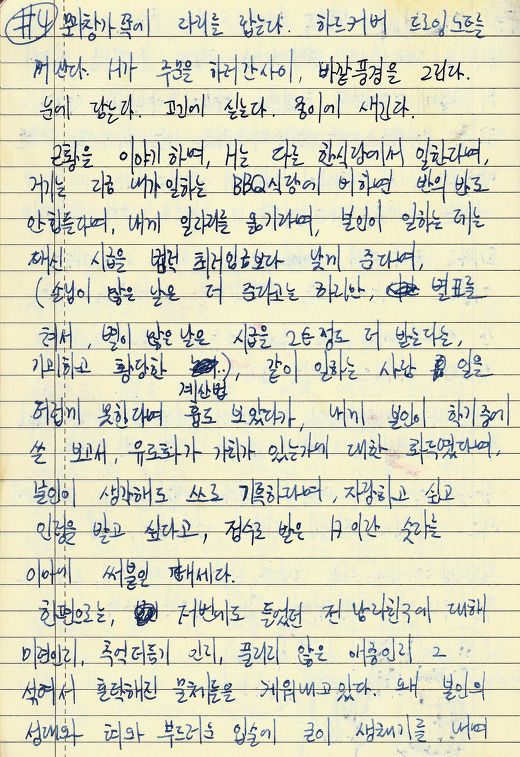 #4 창가쪽에 자리를 잡는다. 하드커버 드로잉노트를
꺼낸다. H가 주문을 하러간사이, 바깥풍경을 그린다.
눈에 담는다. 귀에 싣는다. 종이에 새긴다.
근황을 이야기하며, H는 다른 한식당에서 일한다며,
거기는 지금 내가 일하는 BBQ식당에 비하면 반의 반도
안힘들다며, 내게 일자리를 옮기라며, 본인이 일하는 데는
대신 시급을 법적 최저임금보다 낮게 준다며,
(손님이 많은 날은 더 준다고는 하지만, 별표를
쳐서, 별이 많은날은 시급을 2추정도 더 받는다는,
기괴하고 황당한 계산법), 같이 일하는 사람 일을
더럽게 못한다며 흉도 보았다가, 내게 본인이 학기중에
쓴 보고서, 유로화가 가치가 있는가에 대한 화두였다며,
본인이 생각해도 쓰로 기특하다며, 자랑하고 싶고
인정을 받고 싶다고, 점수로 받은 A이란 숫자는
이마에 써붙인 태세다.
한편으로는, 저번에도 들었던 전 남자친구에 대해
미련인지, 추억더듬기 인지, 풀리지 않은 애증인지 그
섞여서 혼탁해진 물체들을 게워내고있다. 왜 본인의
성대와 혀와 부드러운 입술에 굳이 생채기를 내며